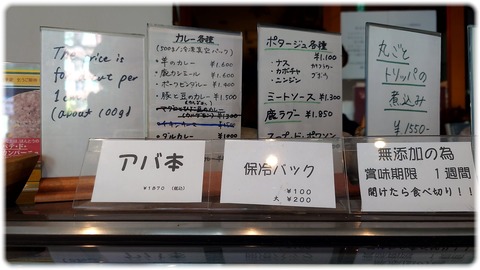 The price is
カレー各種
(500g/冷凍真空パック)
・羊のカレー ¥1.600
・鹿カシミール ¥1.600
・ポークビンダルー ¥1.400
・豚と豆のカレー ¥1.500
・ダルカレー
ポタージュ各種
¥1.100
・ナス
・カボチャ
・ニンジン
ミートソース ¥1.300
鹿ラグー ¥1.850
スープ・ド・ポワソン
丸ごと
トリッパの
煮込み
¥1550-
アバ本
¥1870 (税込)
保冷パック
¥100
大 ¥200
無添加の為
賞味期限 1週間
開けたら食べ切り!!